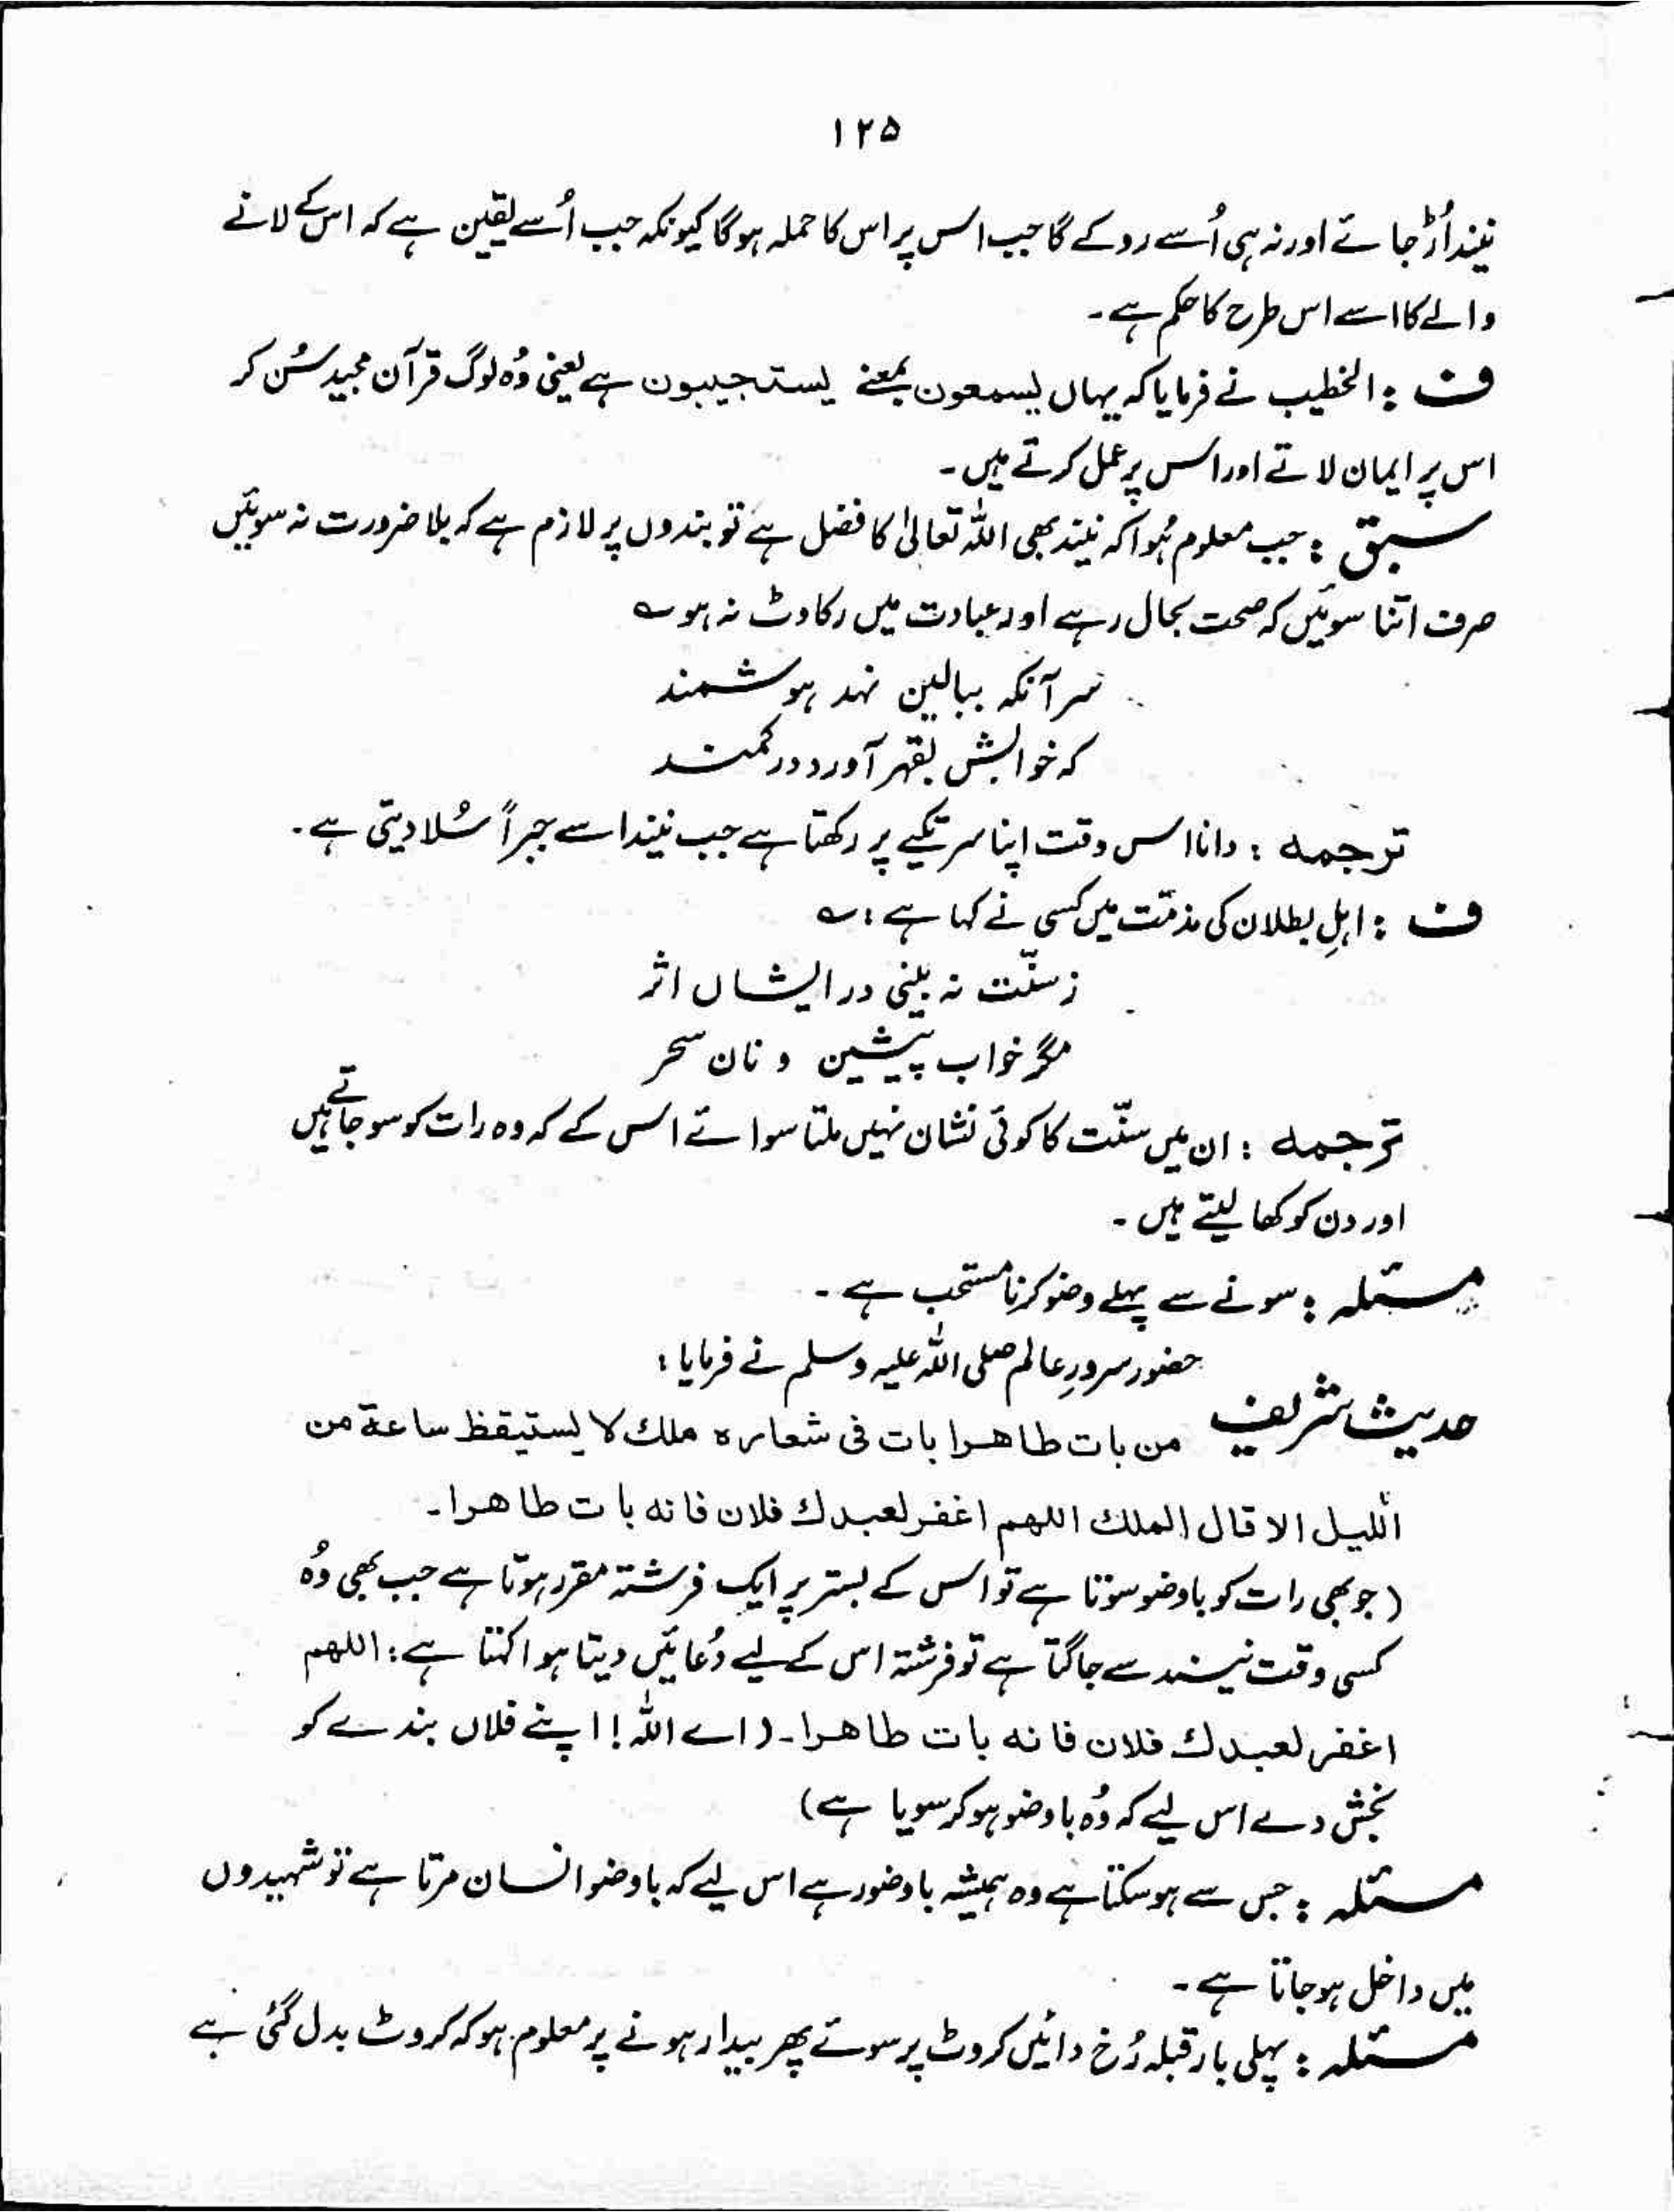 ۱۲۵
نیند اُڑ جائے اور نہ ہی اُسے روکے گا جب اس پر اس کا حملہ ہو گا کیونکہ جب اُسے یقین ہے کہ اس کے لانے
والے کا اسے اس طرح کا حکم ہے۔
ف : الخطیب نے فرمایا کہ یہاں یسمعون بمعنے یستجیبون ہے یعنی وُہ لوگ قرآن مجید سُن کر
اس پر ایمان لاتے اور اس پر عمل کرتے ہیں۔
سبق : جب معلوم ہُوا کہ نیند بھی اللہ تعالیٰ کا فضل ہے تو بندوں پر لازم ہے کہ بلا ضرورت نہ سوئیں
صرف اتنا سوئیں کہ صحت بحال رہے اور عبادت میں رکاوٹ نہ ہو ؎
سر آنکہ ببالین نہد ہوشمند
کہ خوابش بقہر آورد در کمند
ترجمہ : دانا اس وقت اپنا سر تکیے پر رکھتا ہے جب نیند اسے جبراً سُلا دیتی ہے۔
ف : اہلِ بطلان کی مذمّت میں کسی نے کہا ہے : ؎
ز سنّت نہ بینی در ایشاں اثر
مگر خواب پیشین و نان سحر
ترجمہ : ان میں سنّت کا کوئی نشان نہیں ملتا سوائے اس کے کہ وہ رات کو سو جاتے ہیں
اور دن کو کھا لیتے ہیں۔
مسئلہ : سونے سے پہلے وضو کرنا مستحب ہے۔
حضور سرورِ عالم صلی اللہ علیہ وسلم نے فرمایا :
حدیث شریف من بات طاھرا بات فی شعارہ ملك لا یستیقظ ساعة من
اللیل الا قال الملك اللھم اغفر لعبدك فلان فانه بات طاھرا۔
(جو بھی رات کو باوضو سوتا ہے تو اس کے بستر پر ایک فرشتہ مقرر ہوتا ہے جب بھی وُہ
کسی وقت نیند سے جاگتا ہے تو فرشتہ اس کے لیے دُعائیں دیتا ہوا کہتا ہے : اللھم
اغفر لعبدك فلان فانه بات طاھرا۔ (اے اللہ ! اپنے فلاں بندے کو
بخش دے اس لیے کہ وُہ باوضو ہو کر سویا ہے)
مسئلہ : جس سے ہو سکتا ہے وہ ہمیشہ باوضو رہے اس لیے کہ باوضو انسان مرتا ہے تو شہیدوں
میں داخل ہو جاتا ہے۔
مسئلہ : پہلی بار قبلہ رُخ دائیں کروٹ پر سوئے پھر بیدار ہونے پر معلوم ہو کہ کروٹ بدل گئی ہے